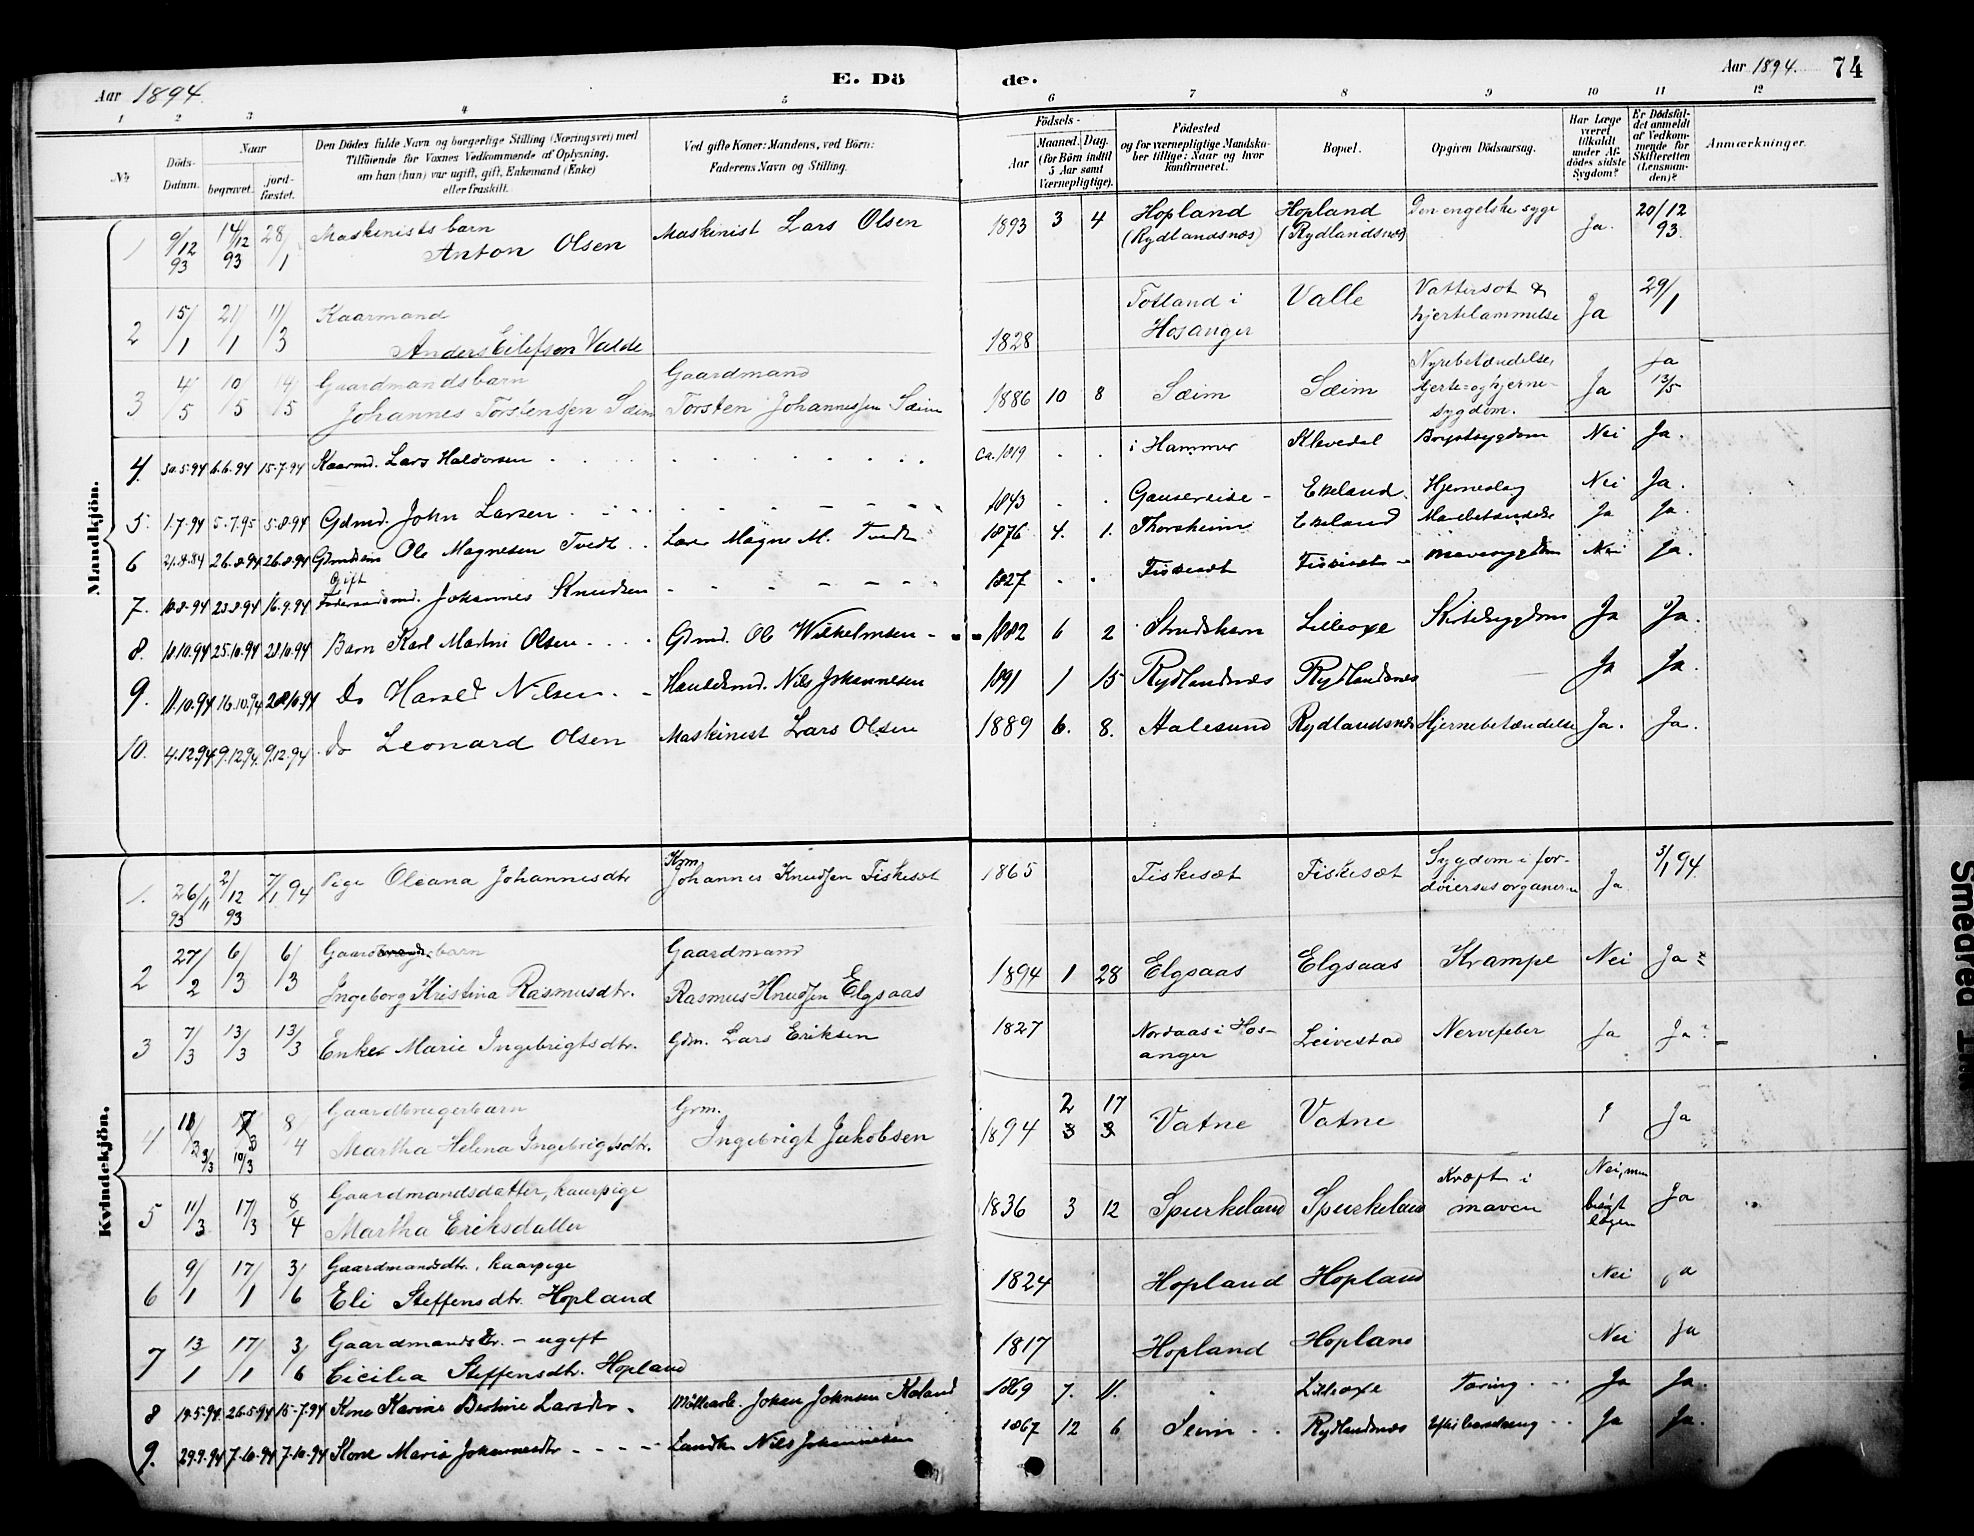 Aar 1894.
E. Dö de.
Aar 1894. 74
1 2 3 4 5 6 7 8 9 10 11 12
No.
Döds-Datum.
Naar
begravet.
jord-fæstet.
Den Dödes fulde Navn og borgerlige Stilling (Næringsvei) med
Tilföiende for Voxnes Vedkommende af Oplysning,
om han (hun) var ugift, gift, Enkemand (Enke)
eller fraskilt.
Ved gifte Koner: Mandens, ved Börn:
Faderens Navn og Stilling.
Födsels-
Aar
Maaned. Dag.
(for Börn indtil
5 Aar samt
Værnepligtige).
Födested
og for værnepligtige Mandska-
ber tillige: Naar og hvor
konfirmeret.
Bopæl.
Opgiven Dödsaarsag.
Har Læge
været
tilkaldt
under Af-
dödes sidste
Sygdom?
Er Dödsfal-
det anmeldt
af Vedkom-
mende for
Skifteretten
(Lensman-
den)?
Anmærkninger.
Mandkjön.
1 9/12 93 14/12 93 28/1 Maskinistsbarn Anton Olsen Maskinist Lars Olsen 1893 3 4 Hopland (Rydlandsnæs) Hopland (Rydlandsnæs) Den engelske syge Ja. 20/12 93.
2 15/1 21/1 11/3 Kaarmand Anders Eilefson Valde 1828 Totland i Hosanger Valle Vattersot & hjertelammelse Ja 29/1
3 4/5 10/5 14/5 Gaardmandsbarn Johannes Torstenssen Sæim Gaardmand Torsten Johannessen Sæim 1886 10 8 Sæim Sæim Nyrebetændelse, hjerte- og hjerne-sygdom. Ja Ja 13/5
4. 30.5.94 6.6.94 15.7.94 Kaarmd. Lars Haldorsen ca. 1819 i Hammer Klevedal Brystsygdom Nei Ja.
5. 1.7.94 5.7.95 5.8.94 Gdmd. John Larsen 1843 Ekeland. Hjerneslag Nei Ja.
6 21.8.84 26.8.94 26.8.94 Ole Magnesen Tvedt Magne M. Tvedt 1876 4. 1. Thorsheim Ekeland Ja Ja.
7. 18.8.94 23.8.94 16.9.94 Gift Johannes Knudsen 1827 Mavesygdom Nei Ja.
8. 18.10.94 25.10.94 28.10.94 Barn Karl Martin Olsen Gdmd. Ole Wilhelmsen 1882 6 2 Lilleoxe Ja Ja.
9. 11.10.94 16.10.94 28.10.94 Do Harald Nilsen Nils Johannesen 1891 1 15 Rydlandsnæs Rydlandsnes Ja Ja.
10. 4.12.94 9.12.94. 9.12.94. do Leonard Olsen Maskinist Lars Olsen 1889 6. 8. Aalesund Rydlandsnæs Hjernebetændelse Ja. Ja.
Kvindekjön.
1. 26/11 93 2/12 93 7/1 94 Pige Oleana Johannesdtr Krm Johannes Knudsen Fiskesæt 1865 Fiskesæt Fiskesæt Sygdom i for-döielsesorganerne Ja 3/1 94
2 27/2 6/3 6/3 Gaardmandsbarn Ingeborg Kristina Rasmusdtr. Gaardmand Rasmus Knudsen Elgsaas 1894 1 28 Elgsaas Elgsaas Krampe Nei Ja?
3 7/3 13/3 13/3 Enke Marie Ingebrigtsdtr. Gdm. Lars Eriksen 1827 Nordaas i Hos-anger Leivestad Nervefeber Ja Ja?
4 3/3 10/3 8/4 Gaardbrugerbarn Martha Helena Ingebrigtsdtr. Grm. Ingebrigt Jakobsen 1894 2 17 Vatne Vatne ? Ja
5 11/3 17/3 8/4 Gaardmandsdatter, kaarpige Martha Eriksdatter 1836 3 12 Spurkeland Spurkeland Kræft i maven Nei, men brugt lægen Ja
6 9/1 17/1 3/6 Gaardmandsdtr., kaarpige Eli Steffensdtr. Hopland 1824 Hopland Hopland Nei Ja
7 13/1 17/1 3/6 Gaardmandsdtr. – ugift Cicilia Steffensdtr. Hopland 1817 Hopland Hopland Nei Ja
8 19.5.94 26.5.94 15.7.94 Kone Karine Bertine Larsdtr. Johan Johnsen 1869 7. 11. Lilleoxe Tæring Ja Ja.
9. 29.9.94 7.10.94 7.10.94 Kone Maria Johannesdtr Nils Johannesen 1867 12 6 Seim Rydlandsnæs Ja Ja.
Smedfred